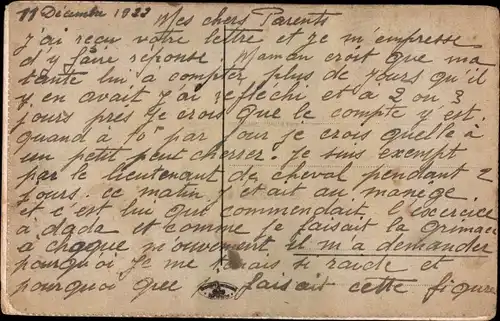 11 Décembre 1933 Mes chers Parents
j'ai reçu votre lettre et je m'empresse
d'y faire réponse Maman croit que ma
tante lui a compter plus de jours qu'il
y en avait j'ai refléchi et a 2 ou 3
jours pres je crois que le compte y est.
quand à 10 par jour je crois quelle à
un petit peut cherrer. Je suis exempt
par le lieutenant de cheval pendant 2
jours. ce matin j etait au manège
et c est lui qui commendait l'exercice
à dada et comme je faisait la grimace
a chaque mouvement il m a demander
pourquoi je me tenais si raide et
pourquoi que faisait cette figure